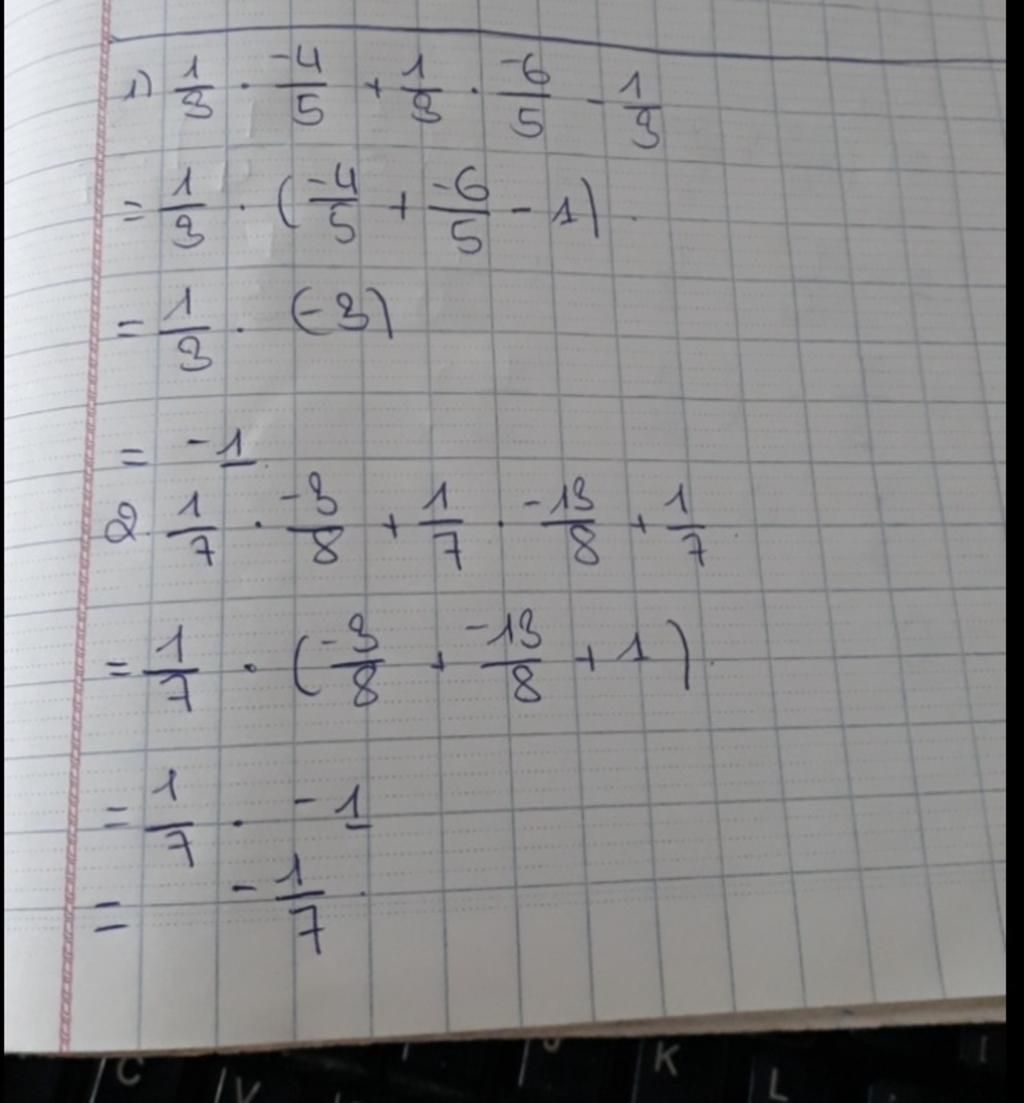 1) 1/3 . -4/5 + 1/3 . -6/5 - 1/3
= 1/3 . (-4/5 + -6/5 - 1) .
= 1/3 . (-3)
= -1
2. 1/7 . -3/8 + 1/7 . -13/8 + 1/7
= 1/7 . (-3/8 + -13/8 + 1) .
= 1/7 . -1
= -1/7
C V K L